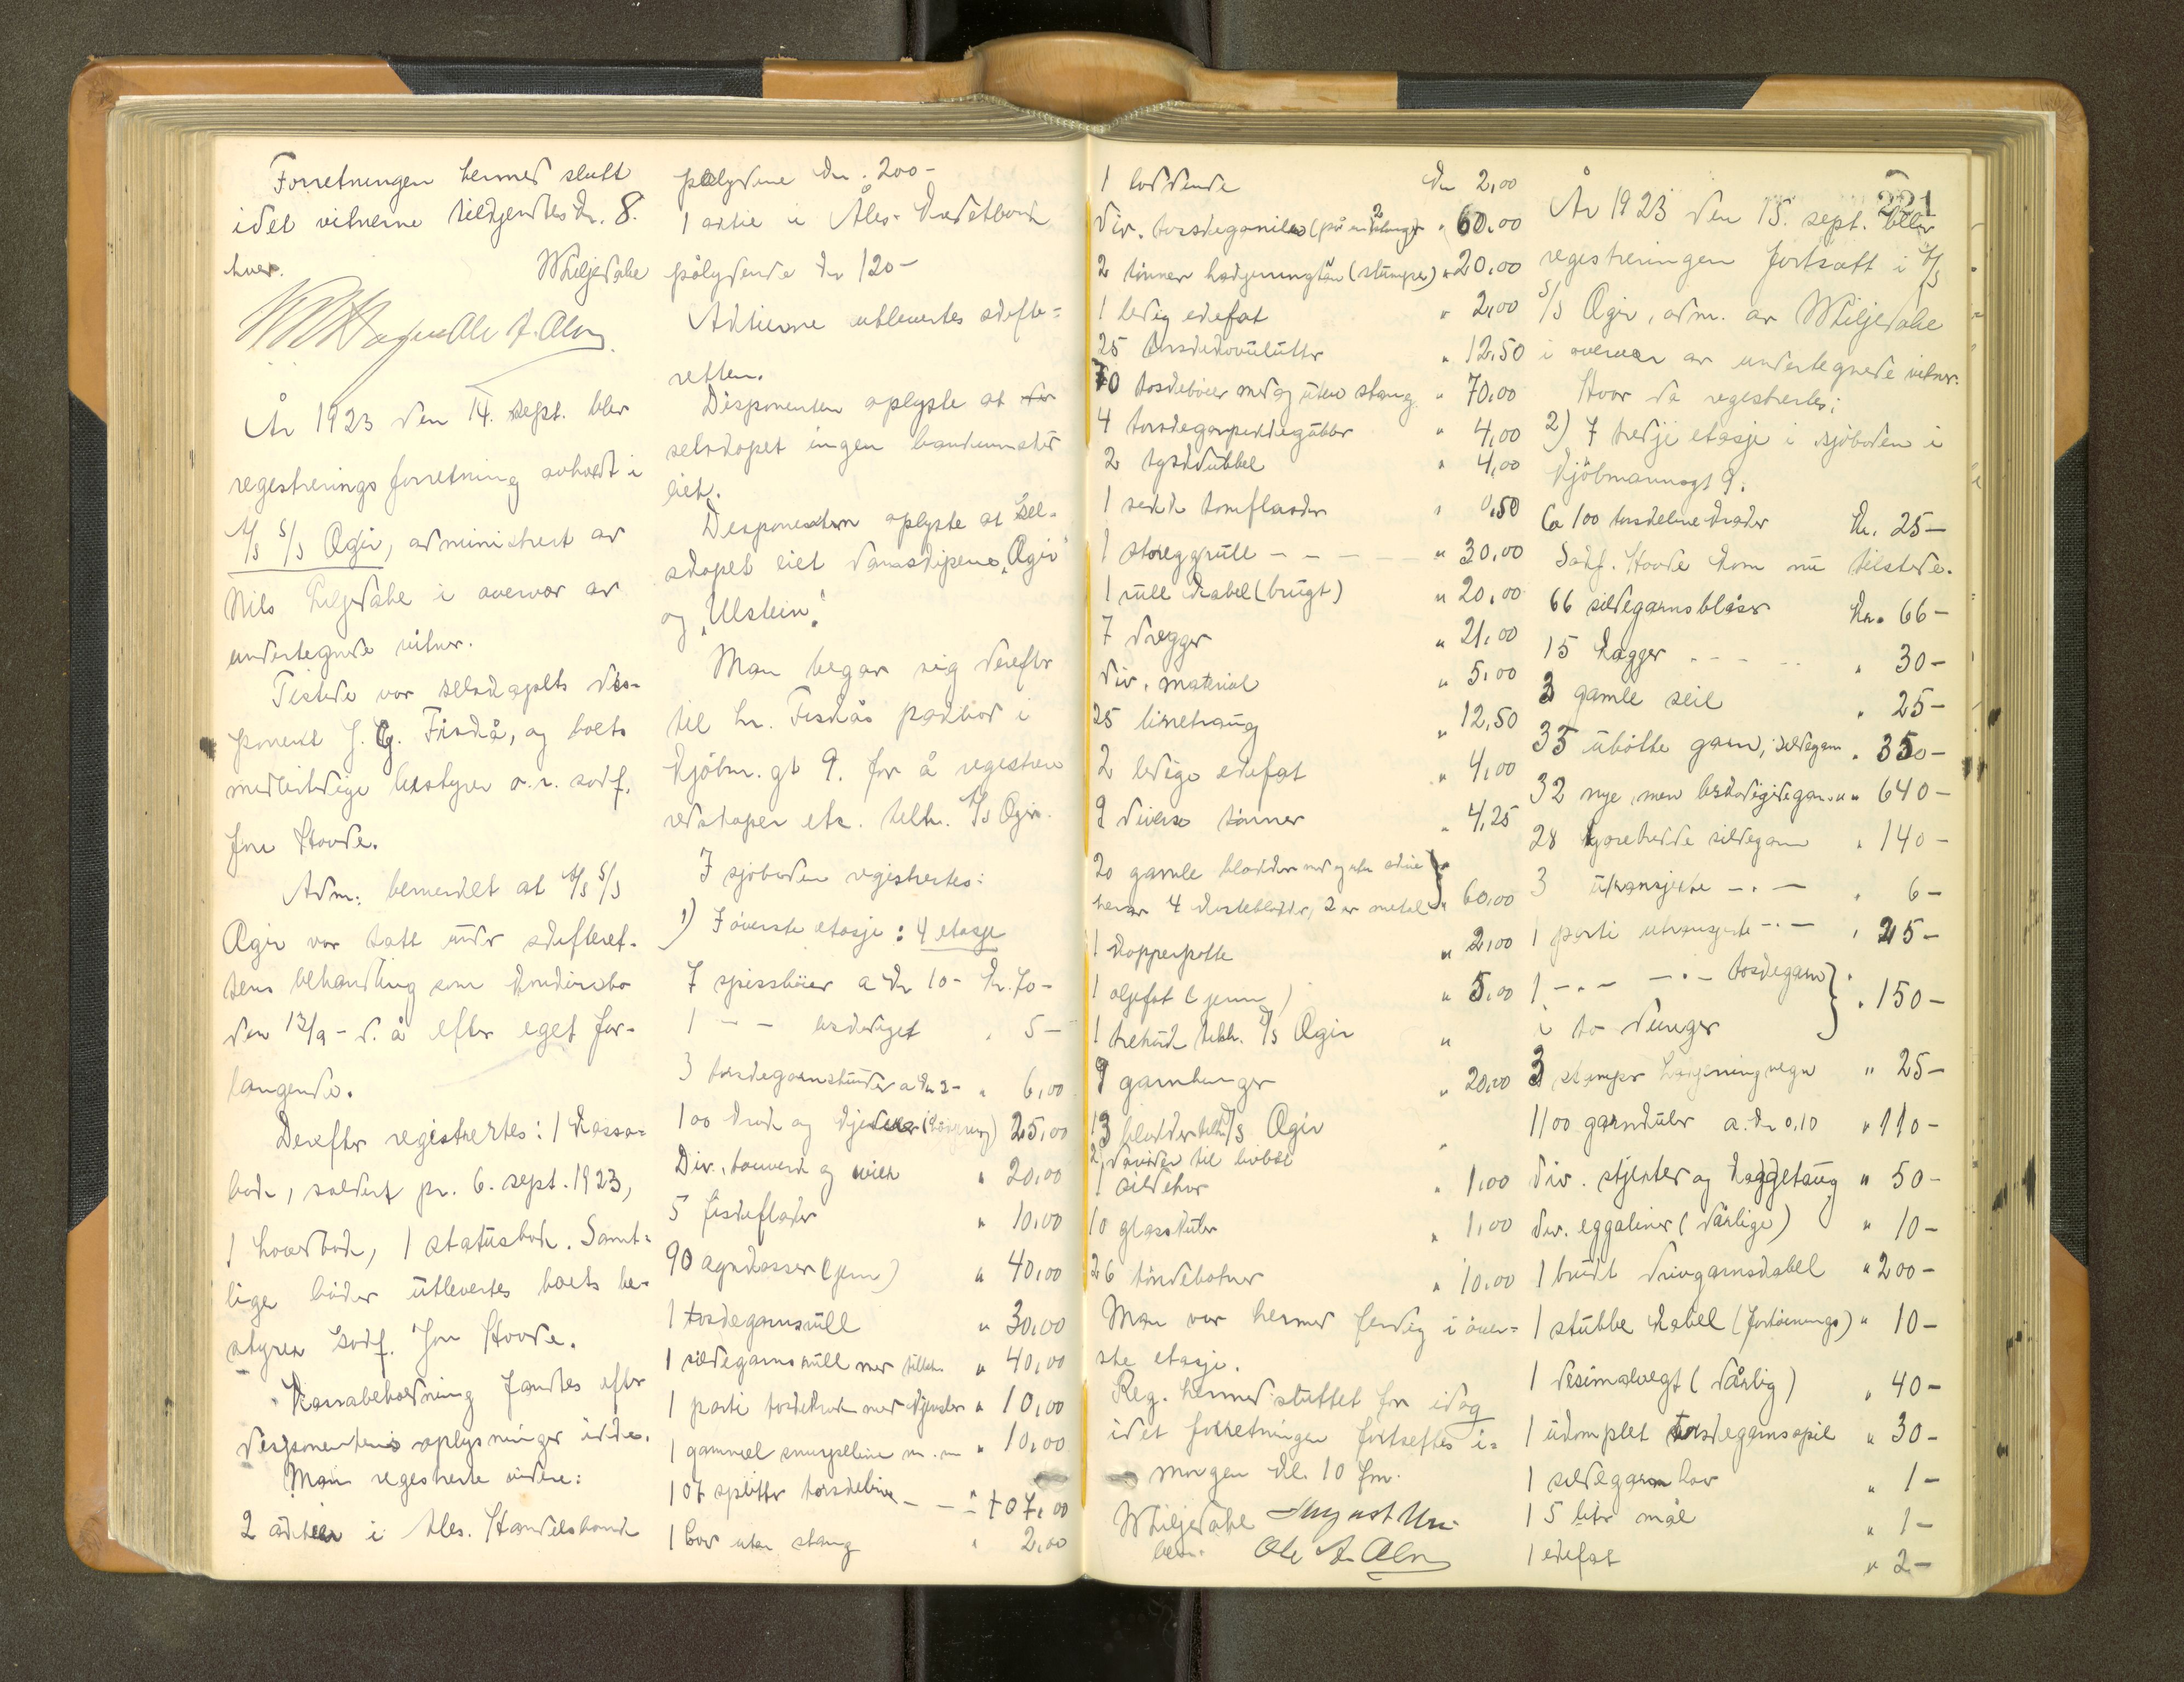 Forretningen hermed slutt
idet vitnerne tilkjendtes kr. 8.
hver.
WLiljedahl
Ole A. Alm
År 1923 den 14. sept. blev
registreringsforretning avholdt i
A/S S/S Ægir, administrert av
Nils Liljedahl i overvær av
undertegnede vitner.
Tilstede var selskapets dis-
ponent J. G. Fiskå, og boets
midlertidige bestyrer o.r. sakf.
Jon Hovde.
Adm. bemerket at A/S S/S
Ægir var tatt under skifteret-
tens behandling som konkursbo
den 13/9 - d. å efter eget for-
langende.
Derefter registrertes: 1 kassa-
bok, saldert pr. 6. sept. 1923,
1 hovedbok, 1 statusbok. Samt-
lige bøker utlevertes boets be-
styrer sakf. Jon Hovde.
Kassabeholdning fandtes efter
disponentens oplysninger ikke.
Man registrerte videre:
2 aktier i Ales. Handelsbank
pålydene kr. 200-
1 aktie i Åles. Kreditbank
pålydende kr 120-
Aktierne utlevertes skifte-
retten.
Disponenten oplyste at
selskapet ingen kontanter
eiet.
Disponenten oplyste at Sel-
skapet eiet dampskipene "Ægir"
og "Ulstein".
Man begav sig derefter
til hr. Fiskås pakbod i
Kjøbm. gt 9. for å registrere
redskaper etc. tilh. A/S Ægir.
I sjøboden registrertes:
1) I øverste etasje: 4 etasje
7 spissbøier a kr 10- kr. 70-
1 - - beskadiget " 5-
3 torskegarnstunder a kr 2- " 6,00
100 krok og kjetter 25,00
Div. tauverk og wire " 20,00
5 fiskeflaker " 10,00
90 agnkasser (jern) " 40,00
1 torskegarnsrull " 30,00
1 sildegarnsrull med tilbeh. " 40,00
1 parti torskekrok med kjenster " 10,00
1 gammel snurpeline m. m " 10,00
107 splitter torskeline - - " 107,00
1 hov uten stang " 2,00
1 loddende kr 2,00
div. torskegarniler " 60,00
2 tønner hodgjerningtau (stumper) " 20,00
1 ledig ekefat " 2,00
25 " 12,50
70 torskebøier med og uten stang " 70,00
4 " 4,00
2 tyskdubbel " 4,00
1 sekk tomflasker " 0,50
1 storeggrull - - - " 30,00
1 rull kabel (brugt) " 20,00
7 dregger " 21,00
div. material " 5,00
25 linetraug " 12,50
2 ledige ekefat " 4,00
9 diverse tønner " 4,25
20 gamle blokker med og uten skive
herav 4 kasteblokker, 2 av metal " 60,00
1 kopperpotte " 2,00
1 oljefat (jern) " 5,00
1 tilh. A/S Ægir "
9 garnhanger " 20,00
13 blokker tilh. A/S Ægir "
2 davider til livbåt
1 sildehov " 1,00
10 glasskuler " 1,00
26 tøndebotner " 10,00
Man var hermed ferdig i øver-
ste etasje.
Reg. hermed sluttet for idag
idet forretningen fortsettes i-
morgen kl. 10 fm.
WLiljedahl
Ole A. Alm
221
År 1923 den 15. sept. blev
registreringen fortsatt i A/S
S/S Ægir, adm. av WLiljedahl
i overvær av undertegnede vitner.
Hvor da registrertes:
2) I tredje etasje i sjøboden i
Kjøbmannsgt 9.
Ca 100 torskelinekraker kr. 25-
Sakf. Hovde kom nu tilstede.
66 sildegarnsblåser kr. 66-
15 kagger - - - " 30-
3 gamle seil " 25-
35 ubøtte garn, sildegarn " 350-
32 nye, men beskadigede garn " 640-
28 sildegarn " 140-
3 utrangjerte - " - " 6-
1 parti utrangerte - " - " 25-
1 - " - - " - torskegarn
i to dunger " 150-
3 stamper " 25-
1100 garnkuler a. kr 0,10 " 110-
div. stjerter og kaggetaug " 50-
div. eggaliner (dårlige) " 10-
1 brukt drivgarnskabel " 200-
1 stubbe kabel (fortøinings) " 10-
1 desimalvegt (dårlig) " 40-
1 ukomplet torskegarnspil " 30-
1 sildegarn hov " 1-
1 5 liter mål " 1-
1 ekefat " 2-